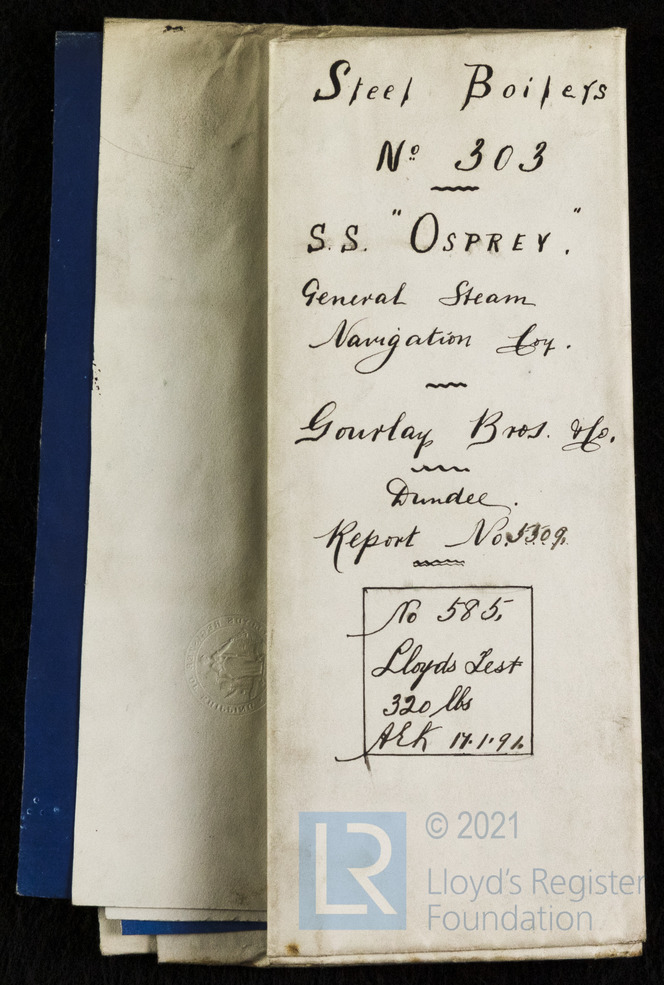 Steel Boilers
No 303
S.S. "OSPREY".
General Steam
Navigation Coy.
Gourlay Bros. & Co.
Dundee.
Report No. 5309.
No 585.
Lloyds Test
320 lbs
AEK 17.1.91.
LR
© 2021
Lloyd's Register
Foundation